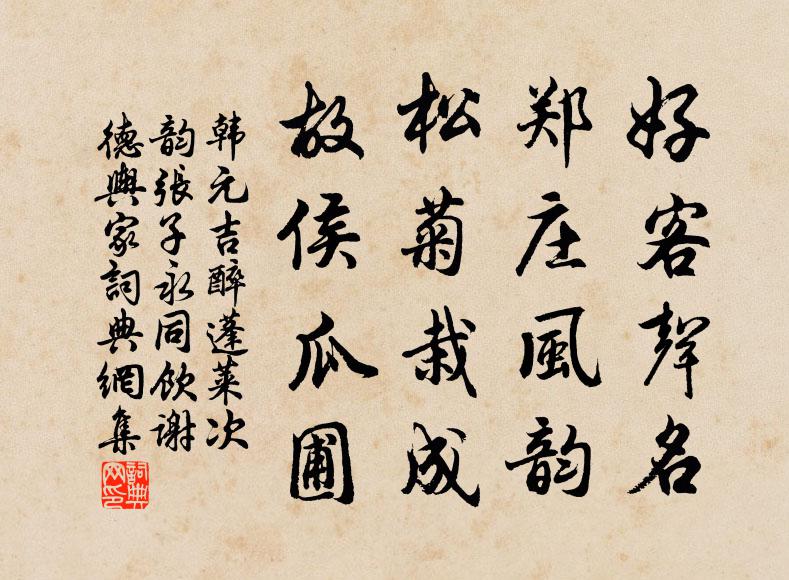 好客声名
郑庄風韵
松菊栽成
故侯瓜圃
韩元吉醉蓬莱次
韵張子永同饮谢
德輿家詞典網集
詞典网印